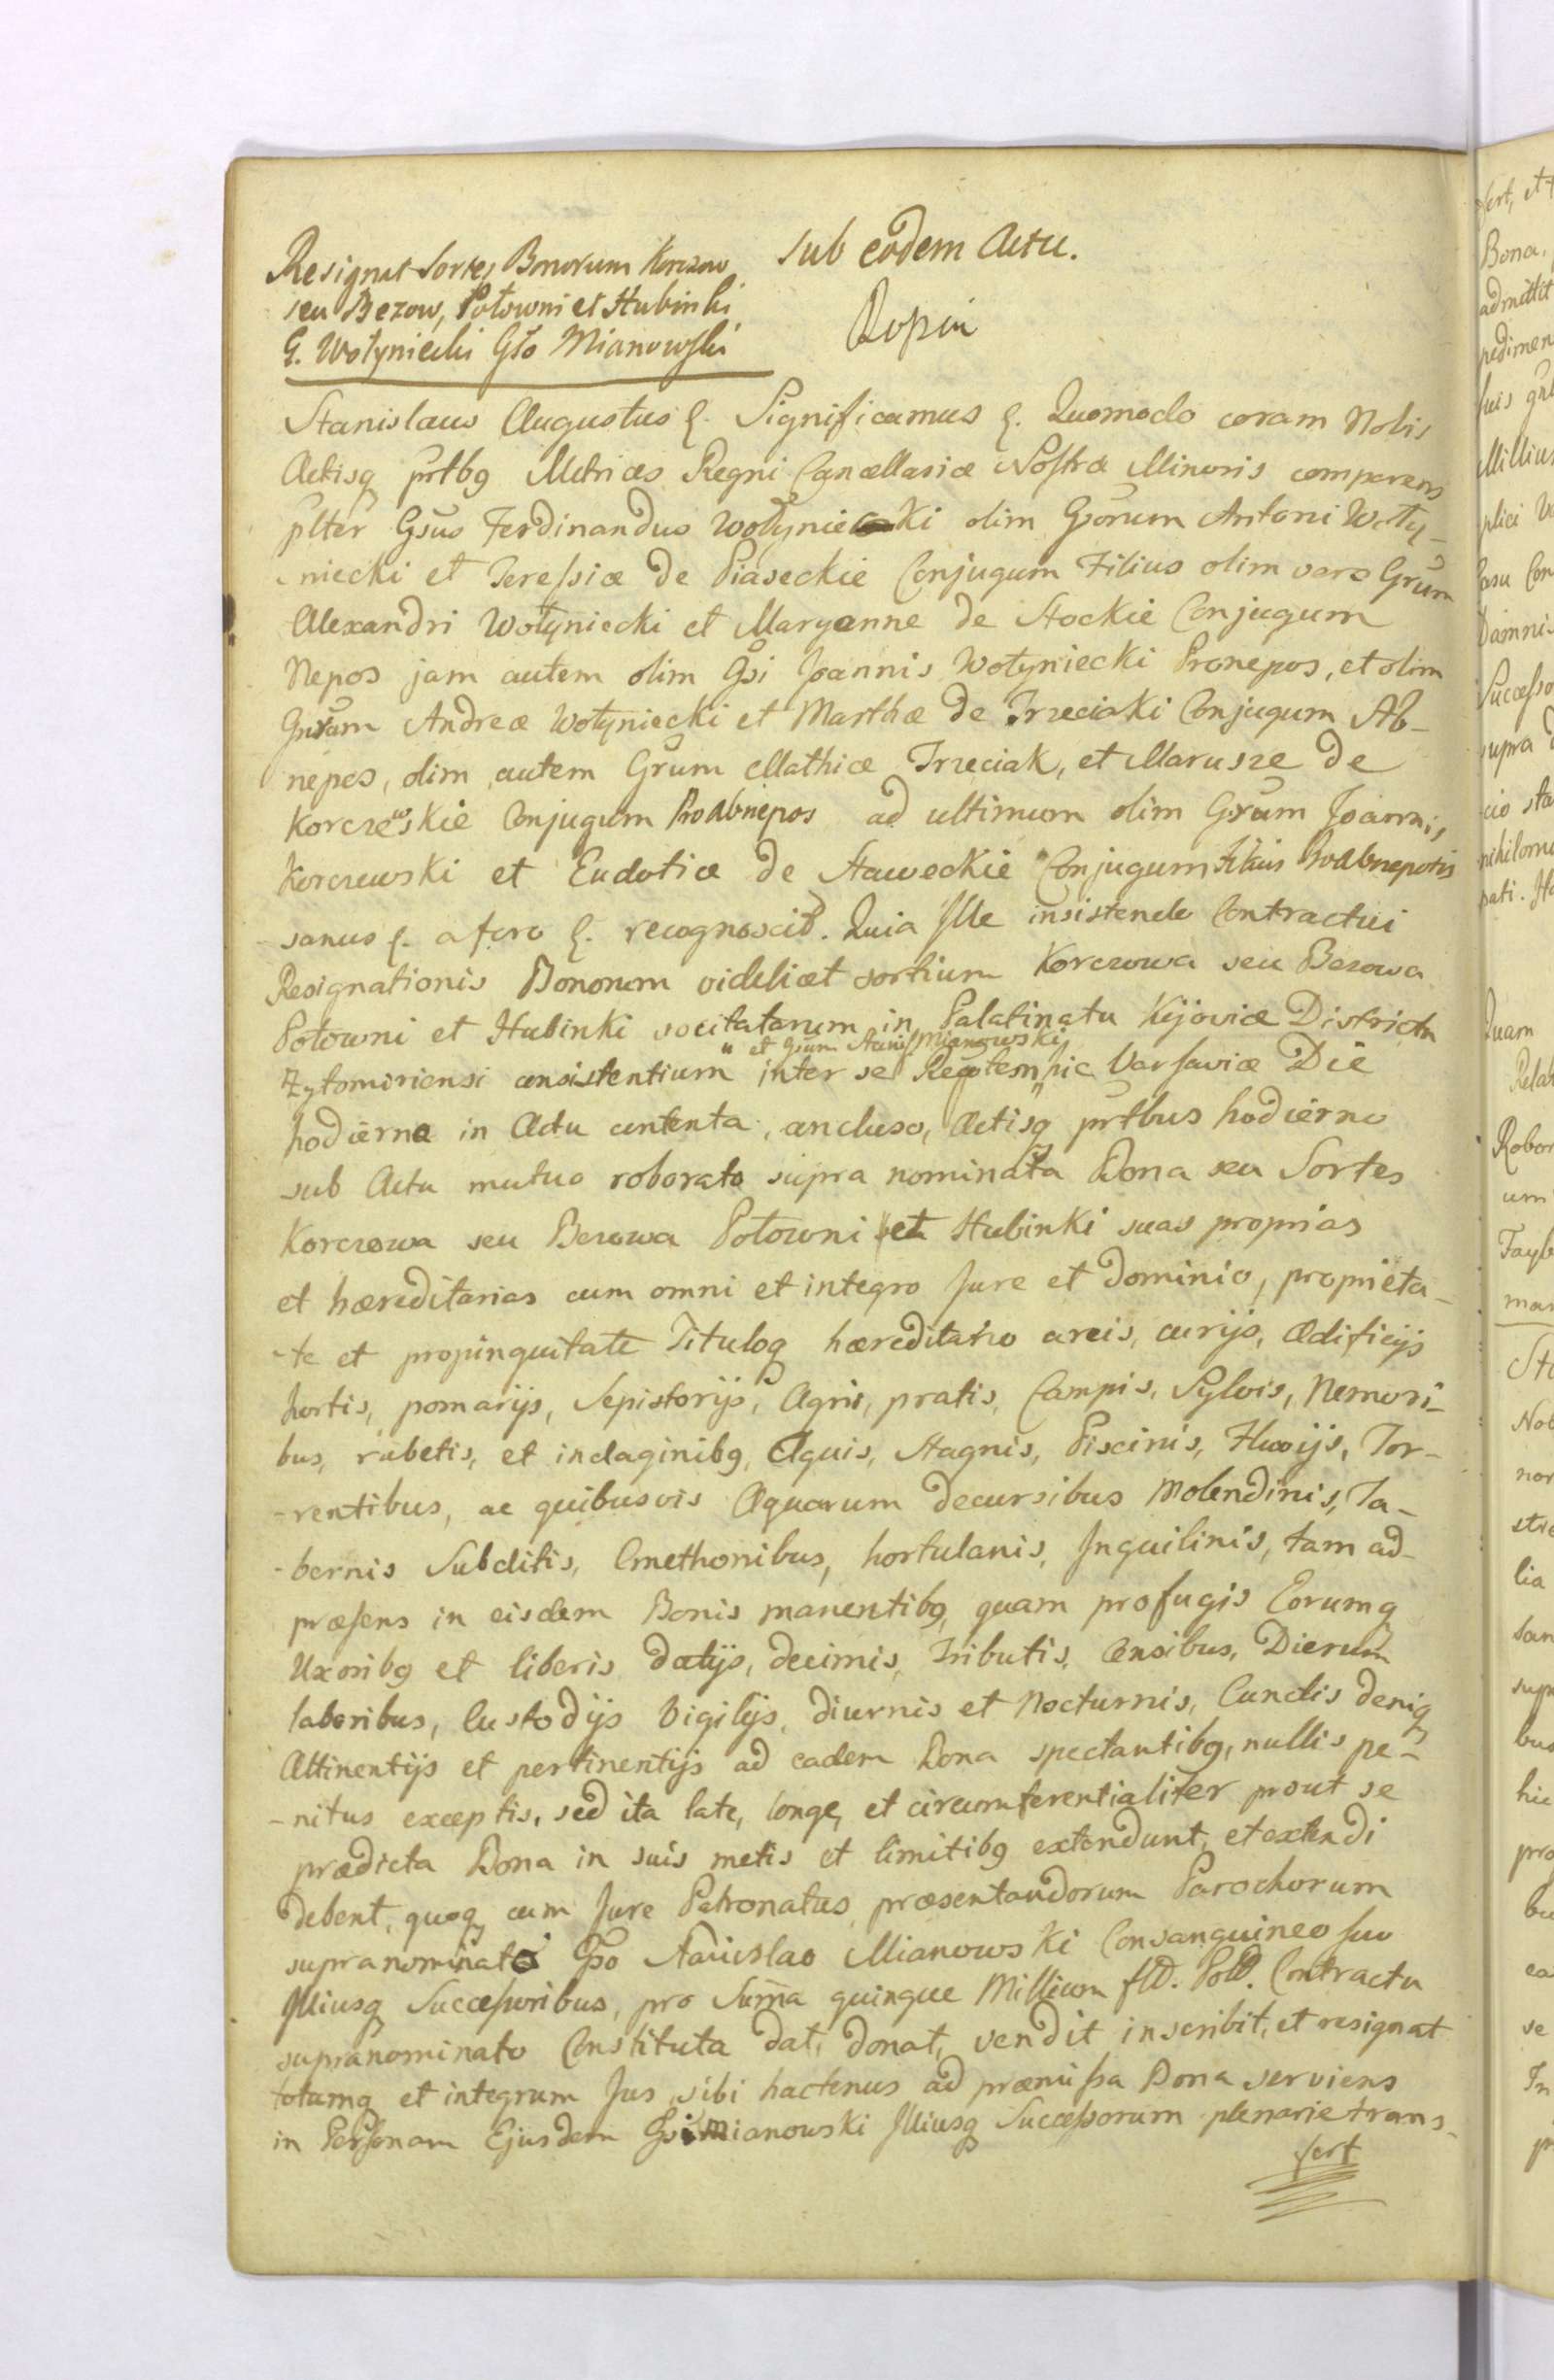 Resignat Sortes Bonorum Korczow
seu Bezow, Połowni et Hubinki
G. Wołyniecki Gso Mianowski
Sub eodem Actu.
Stanislaus Augustus &. Significamus &. Quomodo coram Nobis
Actisq prtbg Metrices Regni Cancellariæ Nostræ Minoris comparens
plter Gsus Ferdinandus Wołyniecki olim Gsorum Antoni Woły-
-niecki et Teressiæ de Piaseckie Conjugum Filius olim vero Grum
Alexandri Wołyniecki et Maryanne de Stockie Conjugum
Nepos jam autem olim Gsi Joannis Wołyniecki Pronepos, et olim
Grum Andreæ Wołyniecki et Marthæ de Trzeciaki Conjugum Ab-
nepos, olim autem Grum Mathiæ Trzeciak, et Marusze de
Korczewskie Conjugum Proabnepos ad ultimum olim Grum Joannis
Korczewski et Eudotiæ de Staweckie Conjugum Filius Proabnepotis
sanus &. a foro &. recognoscit. Quia Ille insistendo Contractui
Resignationis Bonorum videlicet sortium Korczowa seu Bezowa
Połowni et Hubinki vocitatarum in Palatinatu Kijoviæ Districtu
" et Gsum Stanis Mianowski
Zytomiriensi consistentium inter se Recptem hic Varsaviæ Die
hodierna in Actu contenta, concluso, Actisq prtbus hodierno
sub Actu mutuo roborato supra nominata Bona seu Sortes
Korczowa seu Bezowa Połowni et Hubinki suas proprias
et hæreditarias cum omni et integro Jure et Dominio, proprieta-
-te et propinquitate Tituloq hæreditario areis, curijs, Ædificijs
hortis, pomarijs, Sepistorijs, Agris, pratis, Campis, Sylvis, Nemori-
bus, rubetis, et indaginibg, Aquis, Stagnis, Piscinis, Fluvijs, Tor-
-rentibus, ac quibusvis Aquarum decursibus Molendinis, Ta-
-bernis Subditis, Cmethonibus, hortulanis, Inquilinis, tam ad
præsens in eisdem Bonis manentibg, quam profugis Eorumq
Uxoribg et liberis datijs, decimis, Tributis, Censibus, Dierum
laboribus, Custodijs Vigilijs, diurnis et Nocturnis, Cunctis deniq
Attinentijs et pertinentijs ad eadem Bona spectantibg, nullis pe-
-nitus exceptis, sed ita late, longe, et circumferentialiter prout se
prædicta Bona in suis metis et limitibg extendunt, et extendi
debent, quoq cum Jure Patronatus præsentandorum Parochorum
supranominato Gso Stanislao Mianowski Consanguineo suo
Illiusq Successoribus, pro Suma quinque Millium fld. Pold. Contractu
supranominato Constituta dat, donat, vendit inscribit, et resignat
totumq et integrum Jus sibi hactenus ad præmissa Bona serviens
in Personam Ejusdem Gsi Mianowski Illiusq Successorum plenarie trans-
fert